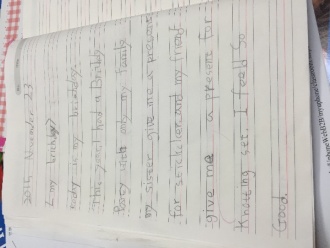 2015 November 23
my birthday
today is my birthday.
This year I had a Birthday
Party with only my family
my sister give me a present
for Stricker and my friend
give me a present for
Knotting set. I feel so
Good.